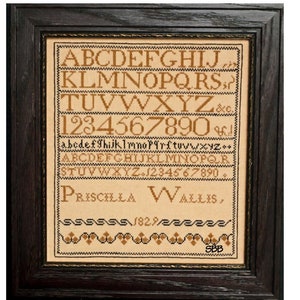 ABCDEFGHIJ
KLMNOPQRS
TUVWXYZ &c.
1234567890
abcdefghijklmnopqrſstuvwxyz
ABCDEFGHIJKLMNOPQR
STUVWXYZ.,1234567890.
PRISCILLA WALLIS,
1829
SBB